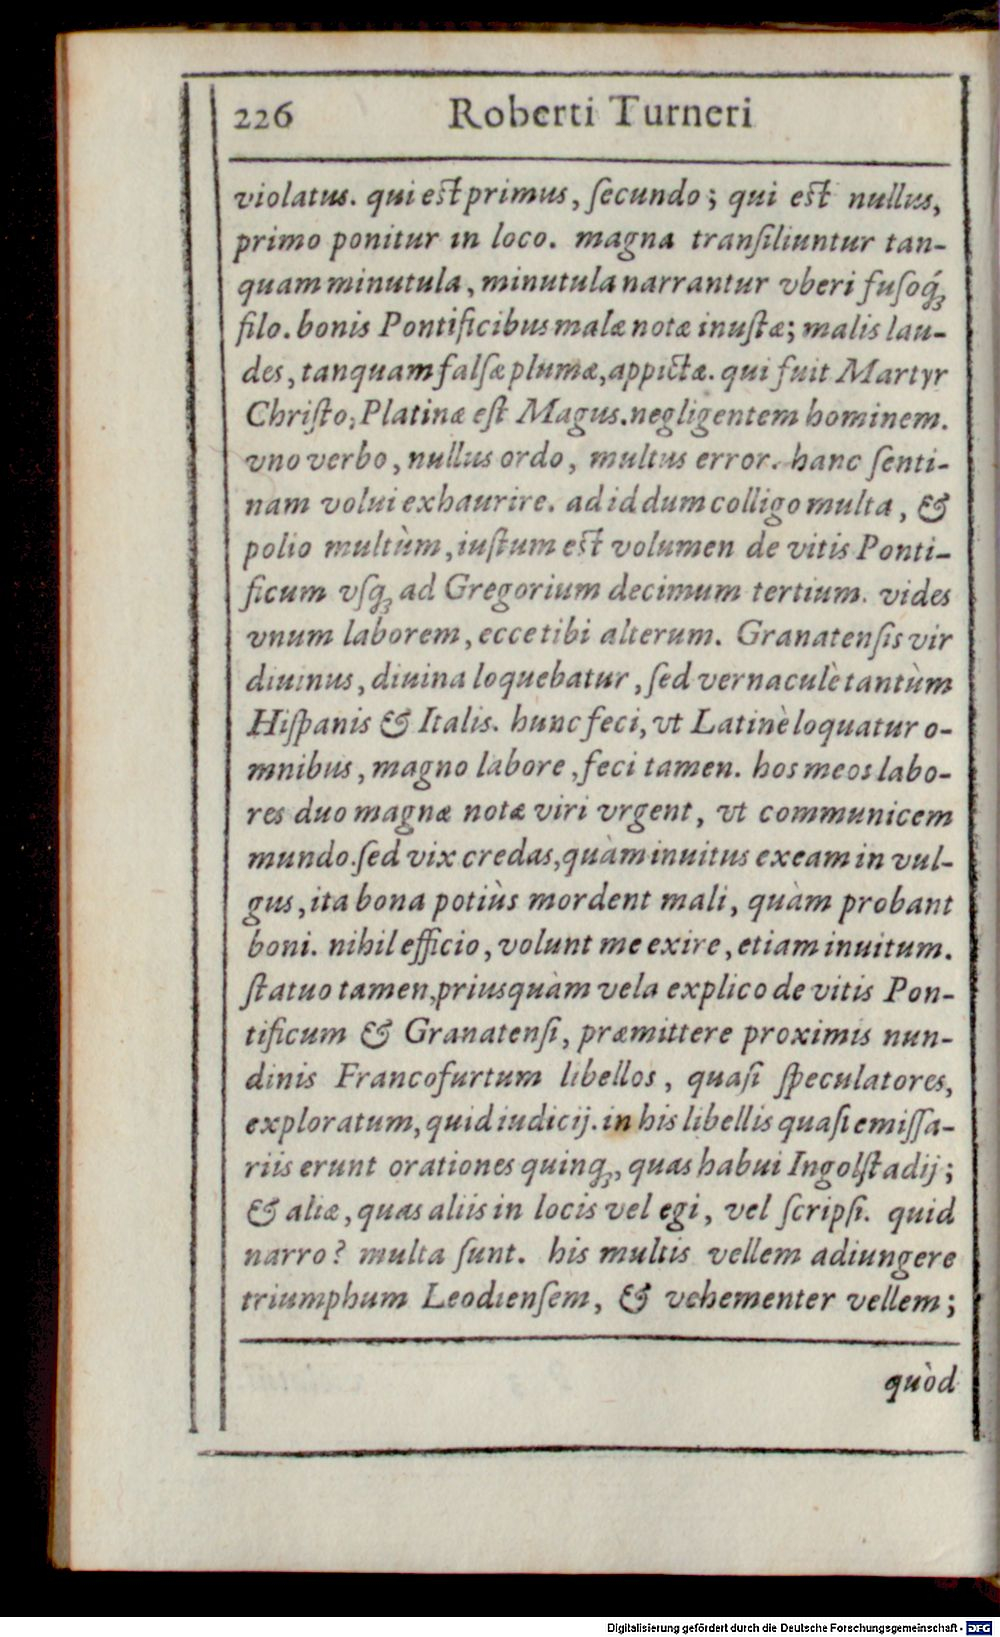 226 Roberti Turneri
violatus. qui est primus, ſecundo; qui est nullus,
primo ponitur in loco. magna tranſiliuntur tan-
quam minutula, minutula narrantur vberi fuſoq́ꝫ
filo. bonis Pontificibus malæ notæ inuſtæ; malis lau-
des, tanquam falſæ plumæ, appictæ. qui fuit Martyr
Chriſto, Platinæ eſt Magus. negligentem hominem.
vno verbo, nullus ordo, multus error. hanc ſenti-
nam volui exhaurire. ad id dum colligo multa, &
polio multùm, iuſtum est volumen de vitis Ponti-
ficum vſqꝫ ad Gregorium decimum tertium. vides
vnum laborem, ecce tibi alterum. Granatenſis vir
diuinus, diuina loquebatur, ſed vernaculè tantùm
Hiſpanis & Italis. hunc feci, vt Latinè loquatur o-
mnibus, magno labore, feci tamen. hos meos labo-
res duo magnæ notæ viri vrgent, vt communicem
mundo. ſed vix credas, quàm inuitus exeam in vul-
gus, ita bona potiùs mordent mali, quàm probant
boni. nihil efficio, volunt me exire, etiam inuitum.
ſtatuo tamen, priusquàm vela explico de vitis Pon-
tificum & Granatenſi, præmittere proximis nun-
dinis Francofurtum libellos, quaſi ſpeculatores,
exploratum, quid iudicij. in his libellis quaſi emiſſa-
riis erunt orationes quinqꝫ, quas habui Ingolſtadij;
& aliæ, quas aliis in locis vel egi, vel ſcripſi. quid
narro? multa ſunt. his multis vellem adiungere
triumphum Leodienſem, & vehementer vellem;
quòd
Digitalisierung gefördert durch die Deutsche Forschungsgemeinschaft - DFG